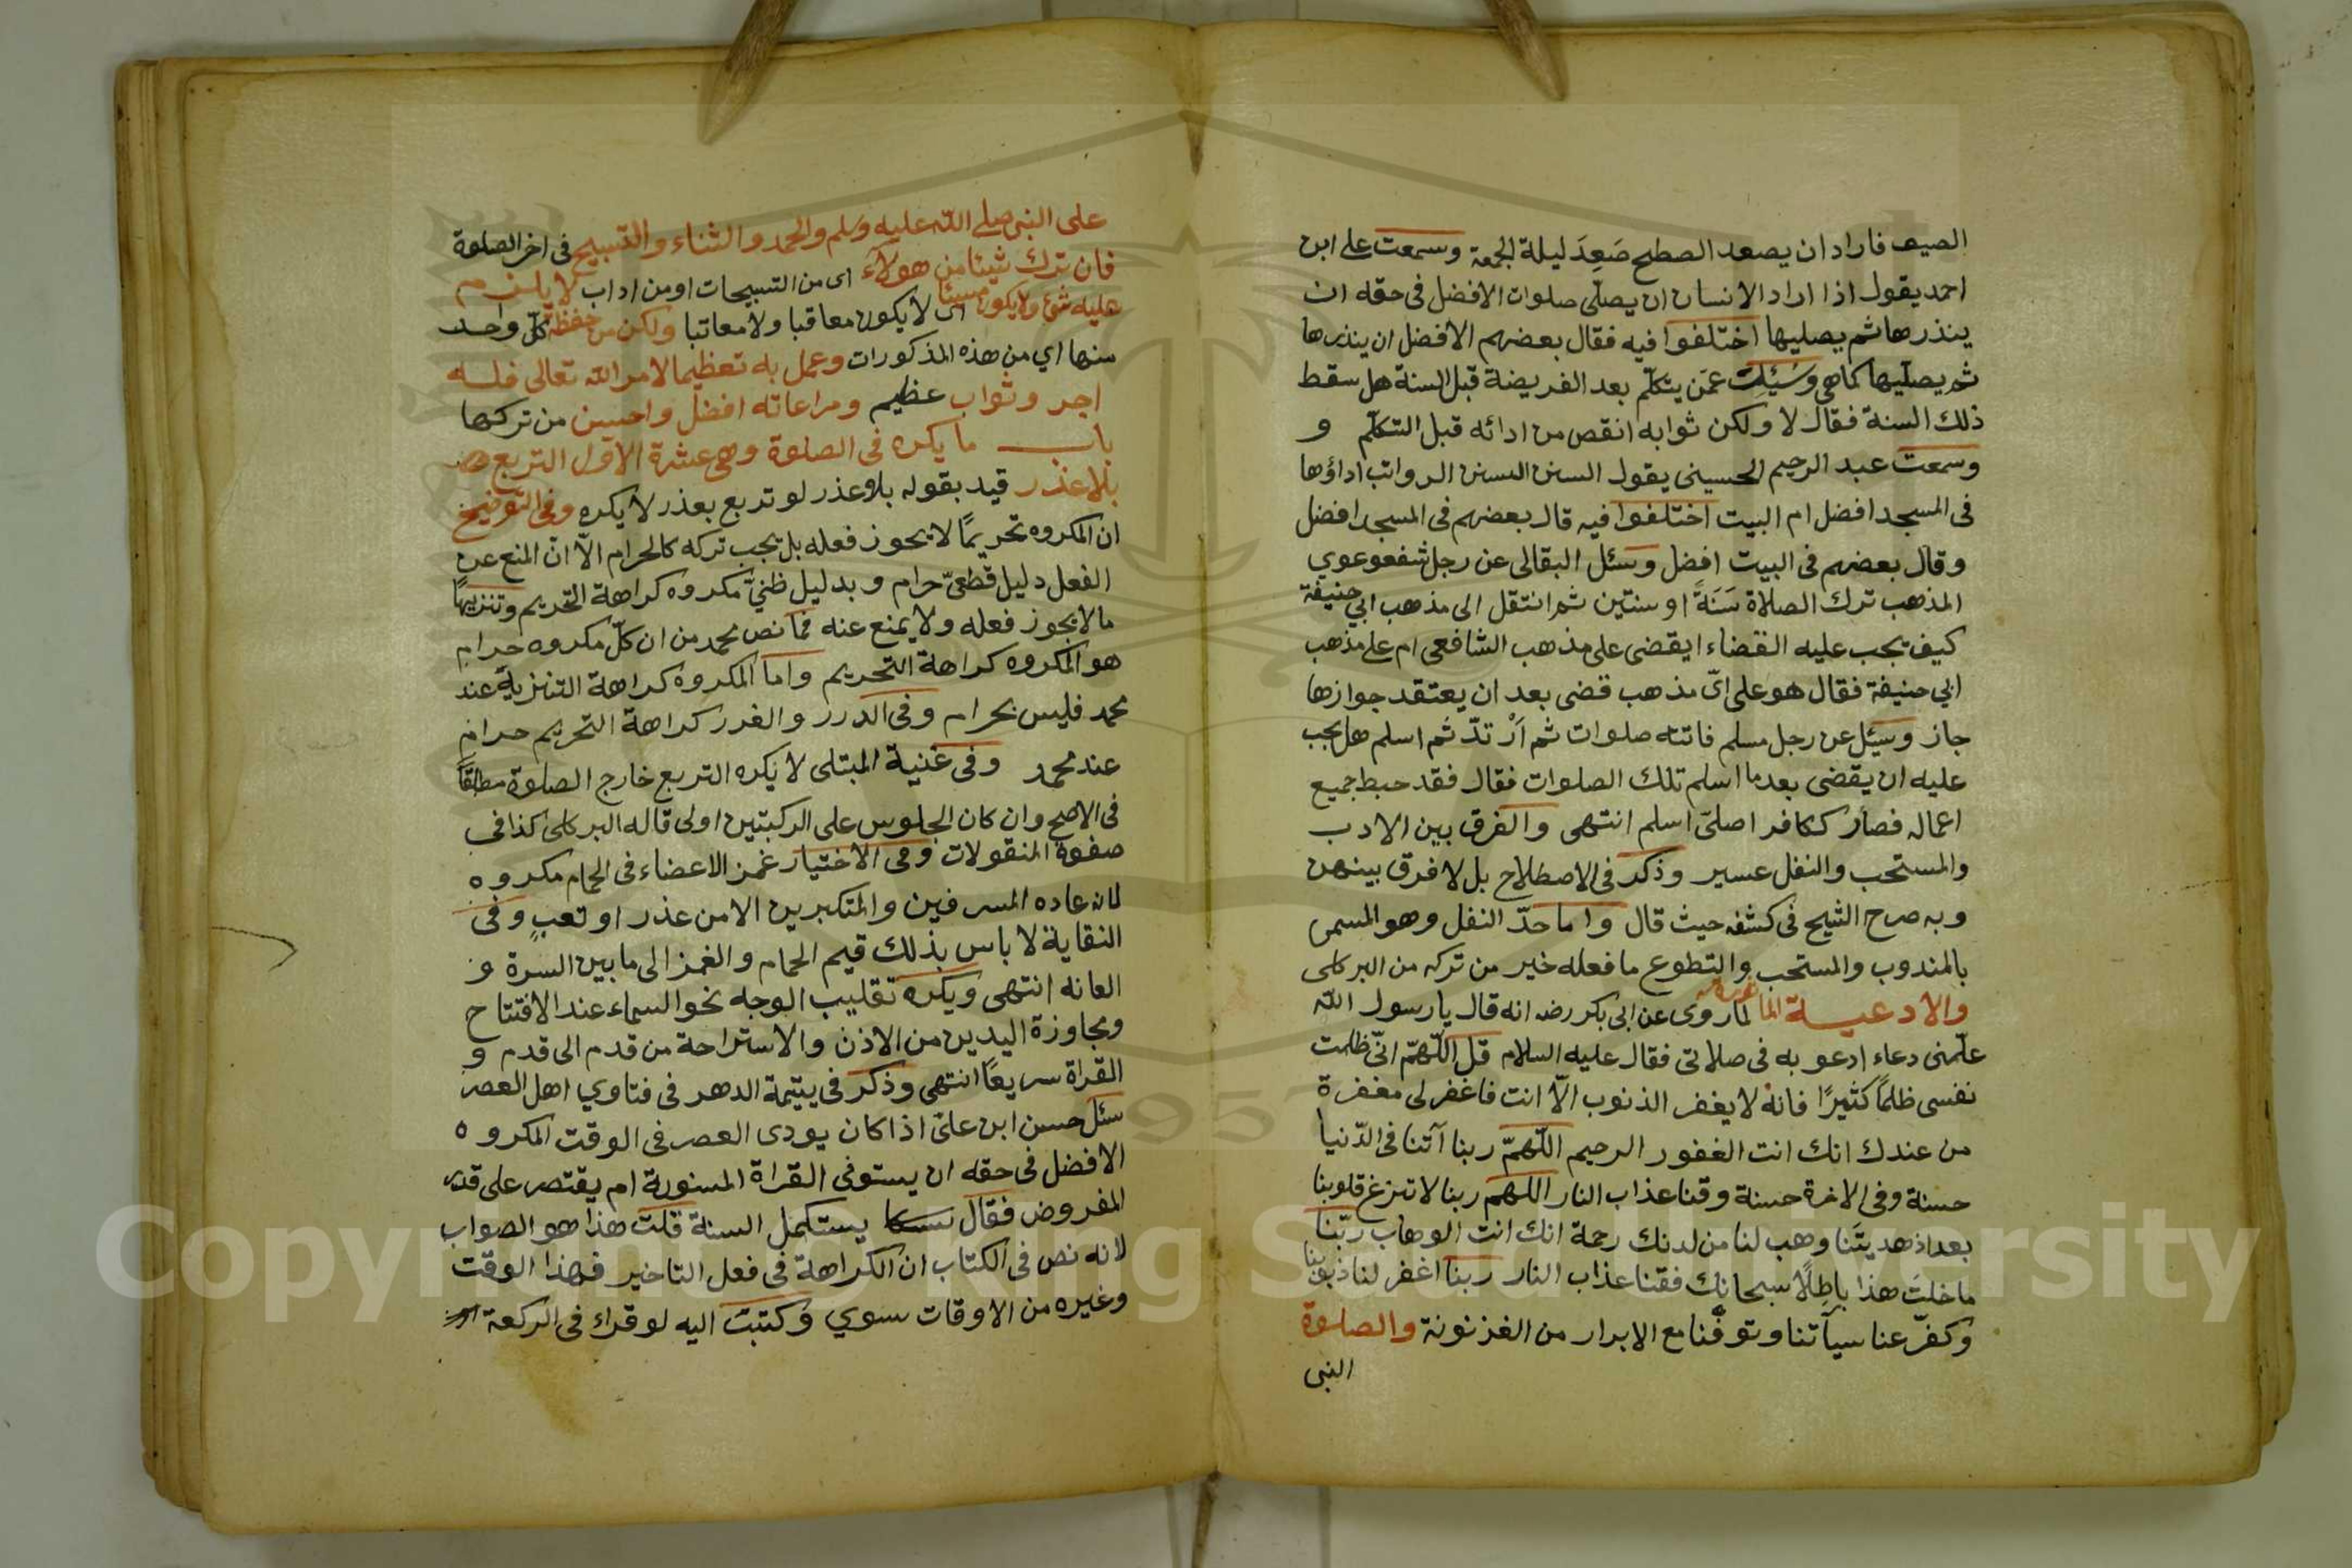 الصيف فاراد ان يصعد الصطح صَعِدَ ليلة الجمعة وسمعت على ابن
احمد يقول اذا اراد الانسان ان يصلّى صلوات الافضل فى حقه ان
ينذرها ثم يصليها اختلفوا فيه فقال بعضهم الافضل ان ينذرها
ثم يصلّيها كما هى وسَئِلت عمّن يتكلّم بعد الفريضة قبل السنة هل سقط
ذلك السنة فقال لا ولكن ثوابه انقص من ادائه قبل التكلّم و
وسمعت عبد الرحيم الحسينى يقول السنن السنن الرواتب اداؤها
فى المسجد افضل ام البيت اختلفوا فيه قال بعضهم فى المسجد افضل
وقال بعضهم فى البيت افضل وسئل البقالى عن رجل شفعوعوي
المذهب ترك الصلاة سَنَةً او سنتين ثم انتقل الى مذهب ابي حنيفة
كيف يجب عليه القضاء ايقضى على مذهب الشافعى ام على مذهب
ابي حنيفة فقال هو على اىّ مذهب قضى بعد ان يعتقد جوازها
جاز وسئِل عن رجل مسلم فاتته صلوات ثم اَرْتدّ ثم اسلم هل يجب
عليه ان يقضى بعد ما اسلم تلك الصلوات فقال فقد حبط جميع
اعماله فصار ككافر اصلىّ اسلم انتهى والفرق بين الادب
والمستحب والنفل عسير وذكر فى الاصطلاح بل لا فرق بينهن
وبه صرح الشيخ فى كشفه حيث قال واما حدّ النفل وهو المسمى
بالمندوب والمستحب والتطوع ما فعله خير من تركه من البركلى
والادعيـة لما روى عن ابى بكر رضه انه قال يا رسول الله
علّمنى دعاء ادعو به فى صلاتى فقال عليه السلام قل اللّهمّ انّى ظلمت
نفسى ظلمًا كثيرًا فانه لا يغفر الذنوب الّا انت فاغفر لى مغفرة
من عندك انك انت الغفور الرحيم اللّهمّ ربنا آتنا فى الدّنيا
حسنة وفى الاخرة حسنة وقنا عذاب النار اللهم ربنا لا تزغ قلوبنا
بعد اذ هديتَنا وهب لنا من لدنك رحمة انك انت الوهاب ربّنا
ما خلقتَ هذا باطِلًا سبحانك فقنا عذاب النار ربنا اغفر لنا ذنوبنا
وكفّر عنا سيآتنا وتوفّنا مع الابرار من الغزنونة والصلوة
النبى
على النبى صلى الله عليه وسلم والحمد والثناء والتسبيح فى اخر الصلوة
فان ترك شيئا من هولآء اى من التسبيحات او من اداب لا يلزم
عليه شئ ولا يكون مسيئا اى لا يكون معاقبا ولا معاتبا ولكن من حفظ كلّ واحد
منها اي من هذه المذكورات وعمل به تعظيما لامر الله تعالى فلـه
اجر وثواب عظيم ومراعاته افضل واحسن من تركها
باب ما يكره فى الصلوة وهى عشرة الاوّل التربع
بلا عذر قيد بقوله بلا عذر لو تربع بعذر لا يكره وفى التوضيح
ان المكروه تحريمًا لا يجوز فعله بل يجب تركه كالحرام الّا انّ المنع عن
الفعل دليل قطعىّ حرام وبدليل ظنيّ مكروه كراهة التحريم وتنزيهًا
ما لا يجوز فعله ولا يمنع عنه فما نص محمد من ان كلّ مكروه حرام
هو المكروه كراهة التحريم واما المكروه كراهة التنزيهة عند
محمد فليس بحرام وفى الدرر والغرر كراهة التحريم حرام
عند محمد وفى غنية المبتلى لا يكره التربع خارج الصلوة مطلقًا
فى الاصح وان كان الجلوس على الركبتين اولى قاله البركلى كذا فى
صفوة المنقولات وفى الاختيار غمز الاعضاء فى الحمام مكروه
لانه عاده المسرفين والمتكبرين الا من عذر او تعبٍ وفى
النقاية لا باس بذلك قيم الحمام والغمز الى ما بين السرة و
العانه انتهى ويكره تقليب الوجه نحو السماء عند الافتتاح
ومجاوزة اليدين من الاذن والاستراحة من قدم الى قدم و
القراة سريعًا انتهى وذكر فى يتيمة الدهر فى فتاوي اهل العصر
سئل حسن ابن علىّ اذا كان يودى العصر فى الوقت المكروه
الافضل فى حقه ان يستوفى القراة المسنونة ام يقتصر على قدر
المفروض فقال يستكمل السنة قلت هذا هو الصواب
لانه نص فى الكتاب ان الكراهة فى فعل التاخير فهذا الوقت
وغيره من الاوقات سوي وكتبت اليه لو قراء فى الركعة
Copyright © King Saud University
1957